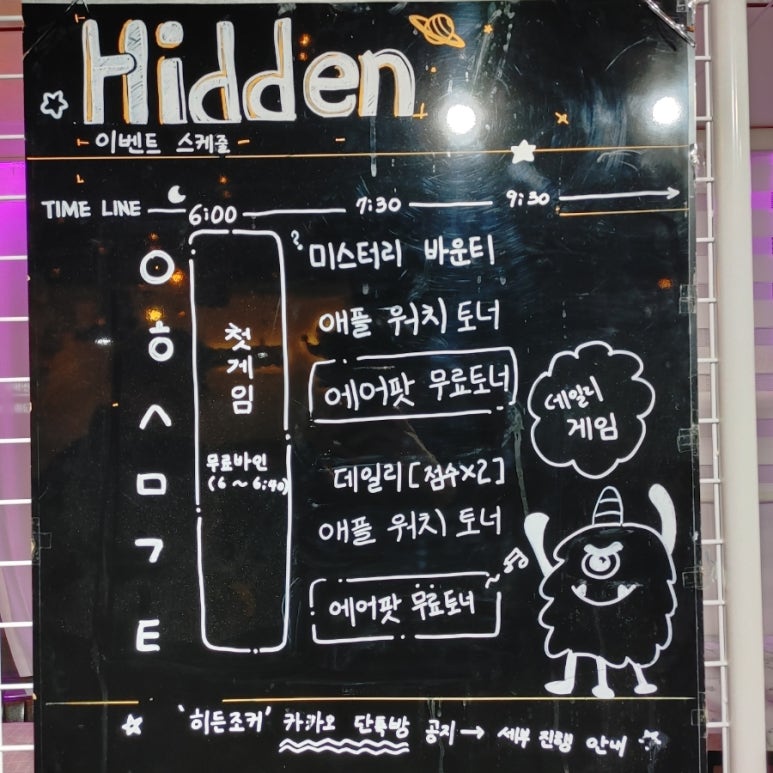 Hidden
이벤트 스케줄
TIME LINE 6:00 7:30 9:30
ㅇ ? 미스터리 바운티
ㅎ 첫게임 애플 워치 토너
ㅅ 에어팟 무료토너 데일리 게임
ㅁ 무료바인 (6 ~ 6:40) 데일리 [점수×2]
ㄱ 애플 워치 토너
ㅌ 에어팟 무료토너
'히든조커' 카카오 단톡방 공지→ 세부 진행 안내